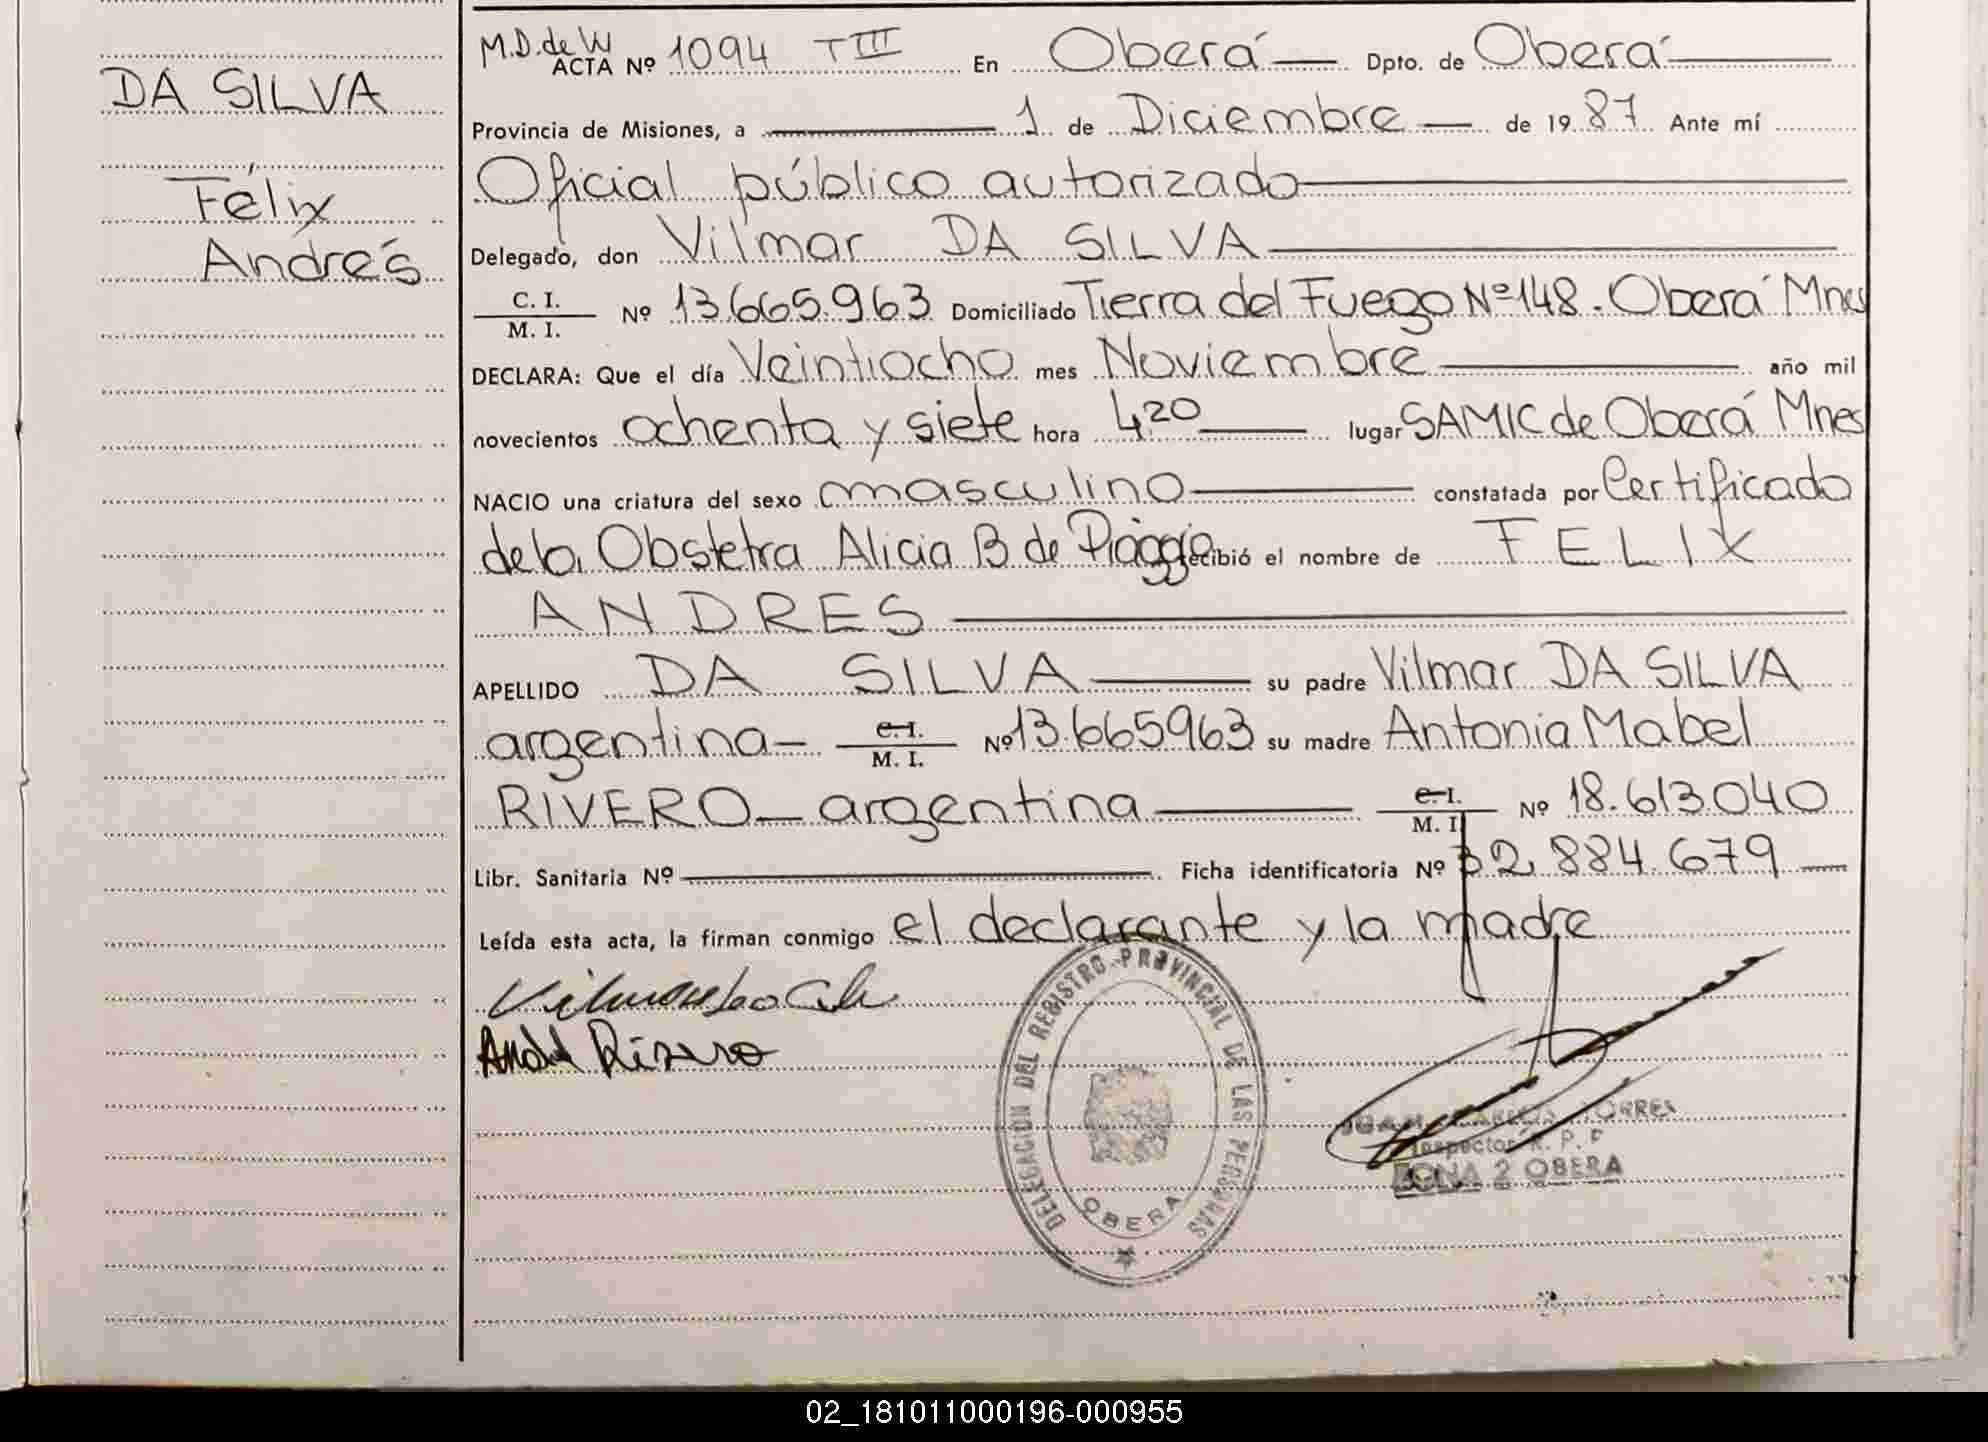 DA SILVA
Félix
Andrés
M.D. de W
ACTA Nº 1094 TIII En Oberá Dpto. de Oberá
Provincia de Misiones, a 1 de Diciembre de 1987 Ante mí
Oficial público autorizado
Delegado, don Vilmar DA SILVA
C. I.
M. I.
Nº 13.665.963 Domiciliado Tierra del Fuego Nº 148. Oberá Mnes
DECLARA: Que el día Veintiocho mes Noviembre año mil
novecientos ochenta y siete hora 4,20 lugar SAMIC de Oberá Mnes
NACIO una criatura del sexo masculino constatada por Certificado
de la Obstetra Alicia B de Piaggio recibió el nombre de FELIX
ANDRES
APELLIDO DA SILVA su padre Vilmar DA SILVA
argentina C. I. M. I. Nº 13.665963 su madre Antonia Mabel
RIVERO argentina C. I. M. I. Nº 18.613.040
Libr. Sanitaria Nº Ficha identificatoria Nº 32.884.679
Leída esta acta, la firman conmigo el declarante y la madre
Rivero
DELEGACION DEL REGISTRO PROVINCIAL DE LAS PERSONAS
OBERA
JUAN CARLOS TORRES
Inspector R. P. P
ZONA 2 OBERA
02_181011000196-000955